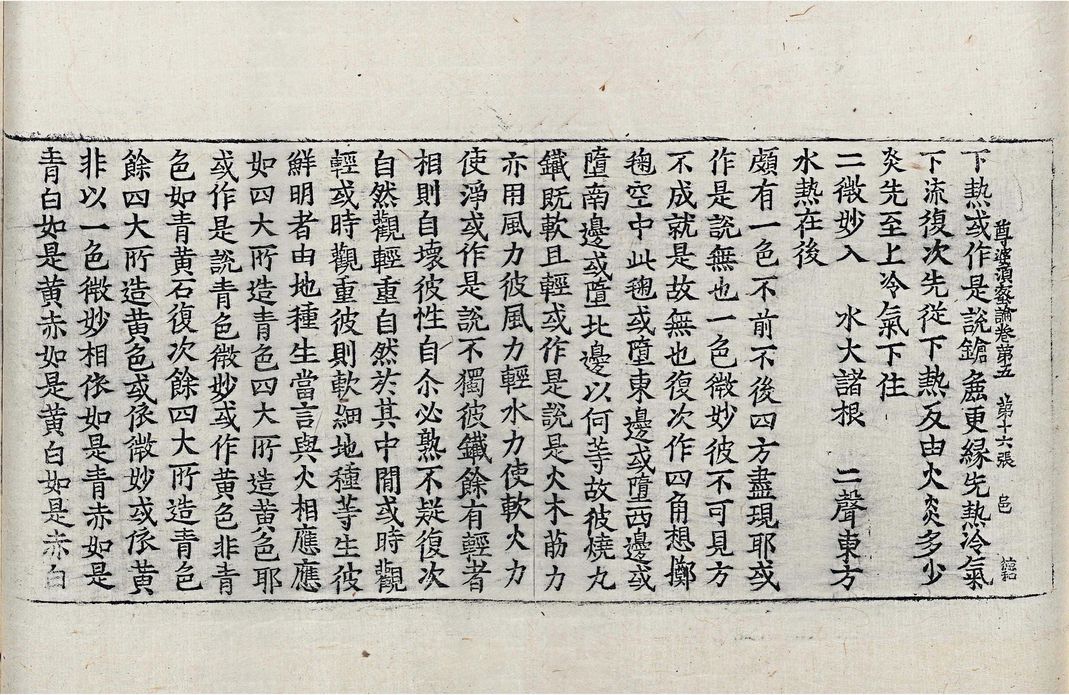 尊婆須蜜論卷第五 第十六張 邑
下熱或作是說鎗麁更緣先熱冷氣
下流復次先從下熱及由火炎多少
炎先至上冷氣下住
二微妙入 水大諸根 二聲東方
水熱在後
頗有一色不前不後四方盡現耶或
作是說無也一色微妙彼不可見方
不成就是故無也復次作四角想擲
毱空中此毱或墮東邊或墮西邊或
墮南邊或墮北邊以何等故彼燒丸
鐵旣軟且輕或作是說是火木筋力
亦用風力彼風力輕水力使軟火力
使淨或作是說不獨彼鐵餘有輕者
相則自壞彼性自尒必熟不疑復次
自然觀輕重自然於其中閒或時觀
輕或時觀重彼則軟細地種等生彼
鮮明者由地種生當言與火相應應
如四大所造青色四大所造黃色耶
或作是說青色微妙或作黃色非青
色如青黃石復次餘四大所造青色
餘四大所造黃色或依微妙或依黃
非以一色微妙相依如是青赤如是
青白如是黃赤如是黃白如是赤白